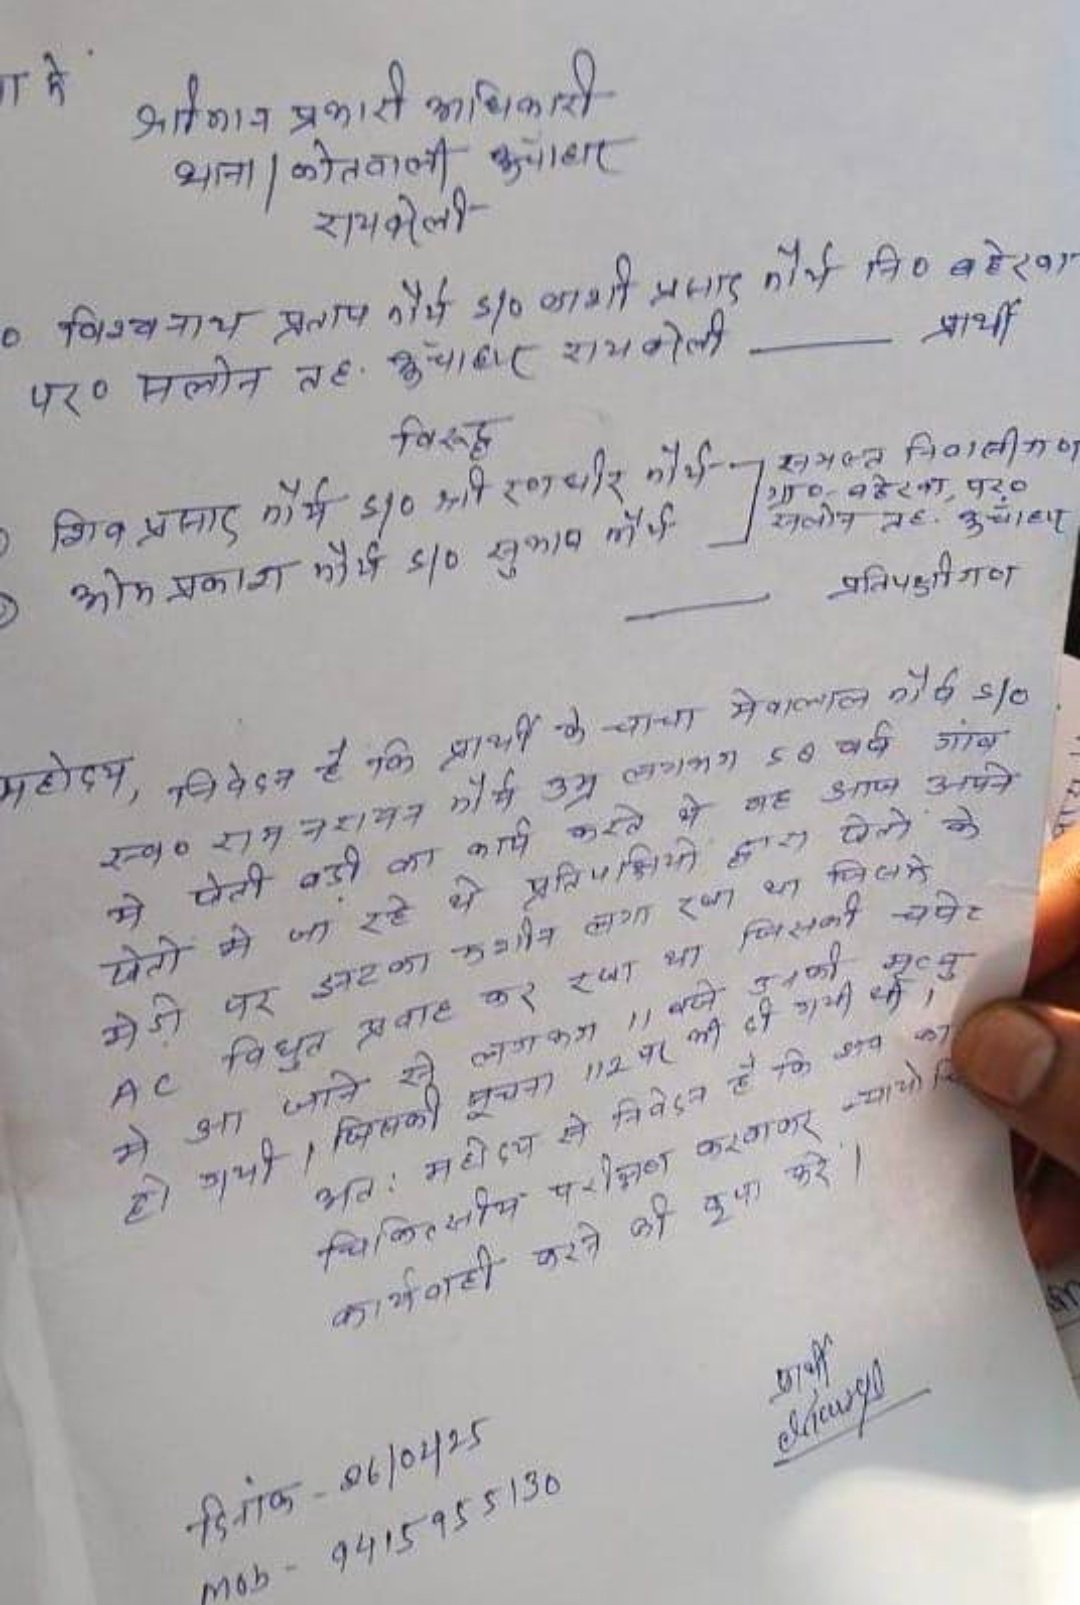 में
श्रीमान प्रभारी अधिकारी
थाना/कोतवाली ऊंचाहार
रायबरेली
विश्वनाथ प्रताप मौर्य S/O काशी प्रसाद मौर्य नि० बहेरवा
पर० सलोन तह. ऊंचाहार रायबरेली ——— प्रार्थी
विरुद्ध
शिव प्रसाद मौर्य S/O श्री रणधीर मौर्य
ओम प्रकाश मौर्य S/O सुभाष मौर्य
समस्त निवासीगण
ग्रा० बहेरवा, पर०
सलोन तह. ऊंचाहार
——— प्रतिपक्षीगण
महोदय, निवेदन है कि प्रार्थी के चाचा मेवालाल मौर्य S/O
स्व० राम नरायन मौर्य उम्र लगभग 50 वर्ष गांव
मे खेती बड़ी का कार्य करते थे वह आज अपने
खेतो मे जा रहे थे प्रतिपक्षियो द्वारा खेतो के
मेड़ो पर झटका मशीन लगा रखा था जिसमे
AC विधुत प्रवाह कर रखा था जिसकी चपेट
मे आ जाने से लगभग 11 बजे उनकी मृत्यु
हो गयी। जिसकी सूचना 112 पर भी दी गयी थी।
अतः महोदय से निवेदन है कि शव का
चिकित्सीय परीक्षण करवाकर
कार्यवाही करने की कृपा करे।
प्रार्थी
दिनांक - 06/04/25
Mob - 9415955130